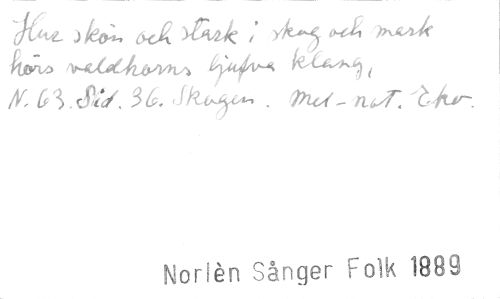 Hur skön och stark i skog och mark
hörs valdhorns ljufva klang,
N. 63. Sid. 36. Skogen. Mel-not. Eko.
Norlèn Sånger Folk 1889